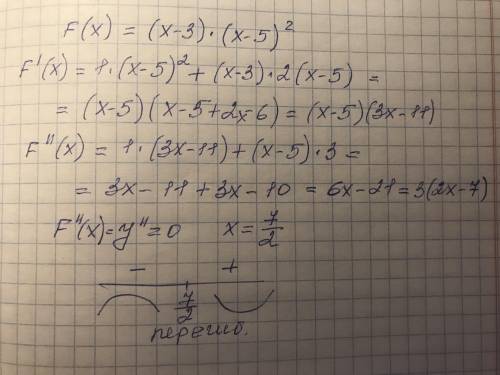 F(x) = (x-3)·(x-5)²
F'(x) = 1·(x-5)² + (x-3)·2(x-5) =
= (x-5)(x-5+2x-6) = (x-5)(3x-11)
F''(x) = 1·(3x-11)+(x-5)·3 =
= 3x-11+3x-10 = 6x-21=3(2x-7)
F''(x)=y''=0 x=7/2
- +
7/2
перегиб.